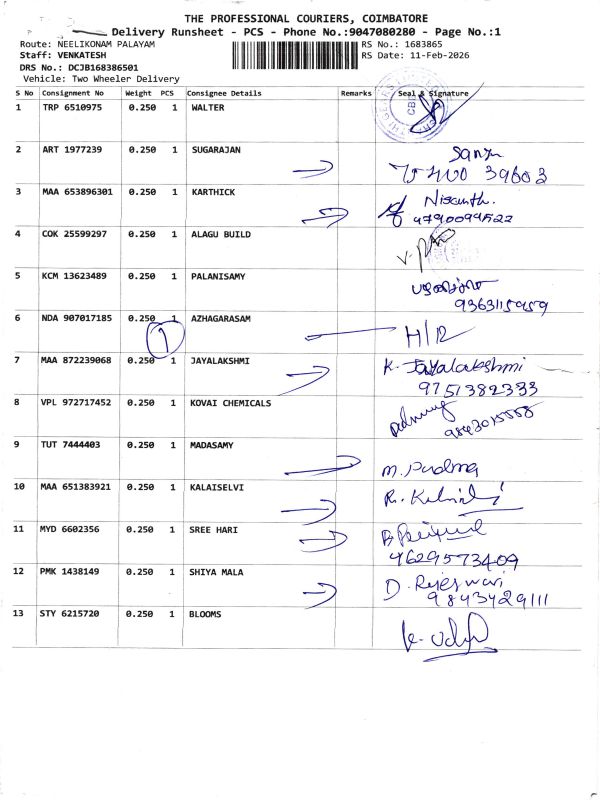 THE PROFESSIONAL COURIERS, COIMBATORE
Delivery Runsheet - PCS - Phone No.:9047080280 - Page No.:1
Route: NEELIKONAM PALAYAM
RS No.: 1683865
Staff: VENKATESH
RS Date: 11-Feb-2026
DRS No.: DCJB168386501
Vehicle: Two Wheeler Delivery
S No Consignment No Weight PCS Consignee Details Remarks Seal & Signature
1 TRP 6510975 0.250 1 WALTER
2 ART 1977239 0.250 1 SUGARAJAN
39603
3 MAA 653896301 0.250 1 KARTHICK Nisanth.
4790094522
4 COK 25599297 0.250 1 ALAGU BUILD
5 KCM 13623489 0.250 1 PALANISAMY
6 NDA 907017185 0.250 1 AZHAGARASAM
1
H/R
7 MAA 872239068 0.250 1 JAYALAKSHMI K. Jayalakshmi
9751382333
8 VPL 972717452 0.250 1 KOVAI CHEMICALS
9 TUT 7444403 0.250 1 MADASAMY
M. Padma
10 MAA 651383921 0.250 1 KALAISELVI
11 MYD 6602356 0.250 1 SREE HARI
4629573409
12 PMK 1438149 0.250 1 SHIYA MALA D. Rajeswari
9843429111
13 STY 6215720 0.250 1 BLOOMS